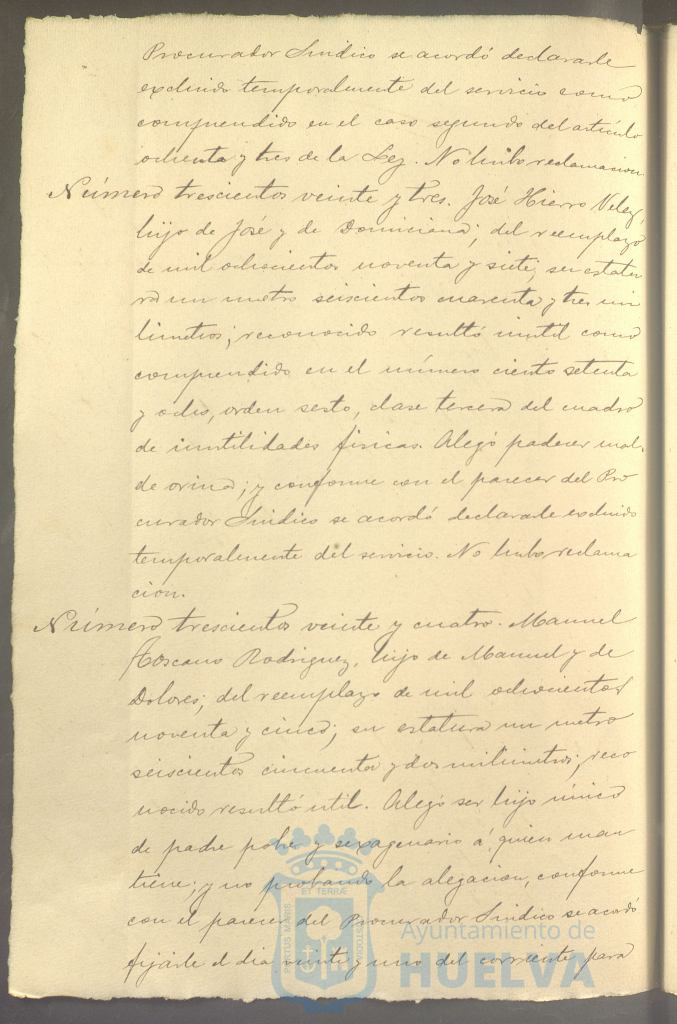 Procurador Sindico se acordó declararle
excluido temporalmente del servicio como
comprendido en el caso segundo del artículo
ochenta y tres de la Ley. No hubo reclamacion.
Número trescientos veinte y tres. José Hierro Velez,
hijo de José y de Domiciana; del reemplazo
de mil ochocientos noventa y siete; su estatu
ra un metro seiscientos cuarenta y tres mi
límetros; reconocido resultó inutil como
comprendido en el número ciento setenta
y ocho, orden sesto, clase tercera del cuadro
de inutilidades físicas. Alegó padecer mal
de orina; y conforme con el parecer del Pro
curador Sindico se acordó declararle excluido
temporalmente del servicio. No hubo reclama
cion.
Número trescientos veinte y cuatro. Manuel
Toscano Rodriguez, hijo de Manuel y de
Dolores; del reemplazo de mil ochocientos
noventa y cinco; su estatura un metro
seiscientos cincuenta y dos milímetros; reco
nocido resultó util. Alegó ser hijo único
de padre pobre y sexagenario á quien man
tiene; y no probando la alegacion, conforme
con el parecer del Procurador Sindico se acordó
fijarle el dia veinte y uno del corriente para
PORTUS MARIS ET TERRÆ CUSTODIA
Ayuntamiento de
HUELVA